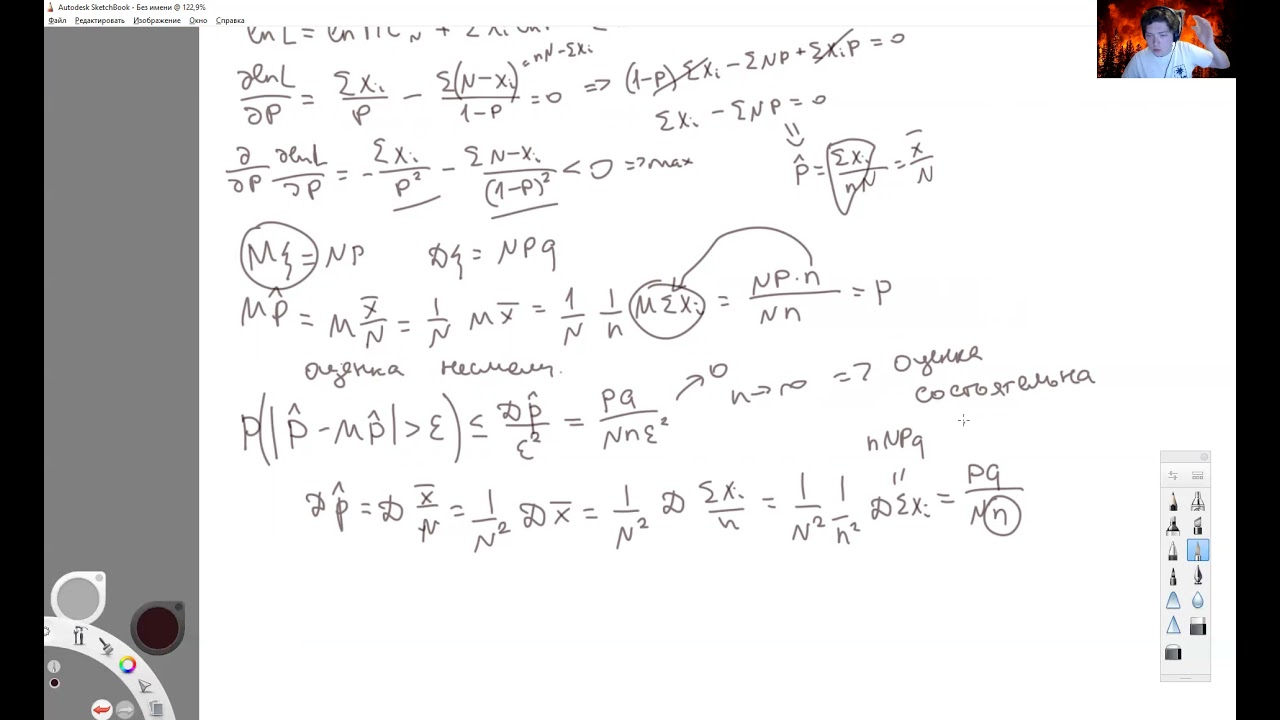 Autodesk SketchBook - Без имени @ 122,9%
Файл Редактировать Изображение Окно Справка
∂lnL/∂p = Σxᵢ/p − Σ(N−xᵢ)/(1−p) = 0 ⇒ (1−p)Σxᵢ − ΣNp + Σxᵢp = 0
= nN − Σxᵢ
Σxᵢ − ΣNp = 0
∂/∂p ∂lnL/∂p = − Σxᵢ/p² − ΣN−xᵢ/(1−p)² < 0 ⇒ max
p̂ = Σxᵢ/nN = x̄/N
Mξ = Np Dξ = Npq
Mp̂ = M x̄/N = 1/N Mx̄ = 1/N 1/n MΣxᵢ = Np·n/Nn = p
оценка несмещ.
P(|p̂ − Mp̂| > ε) ≤ Dp̂/ε² = pq/Nnε² → 0 n→∞ ⇒ оценка состоятельна
nNpq
Dp̂ = D x̄/N = 1/N² Dx̄ = 1/N² D Σxᵢ/n = 1/N² 1/n² DΣxᵢ = pq/Nn